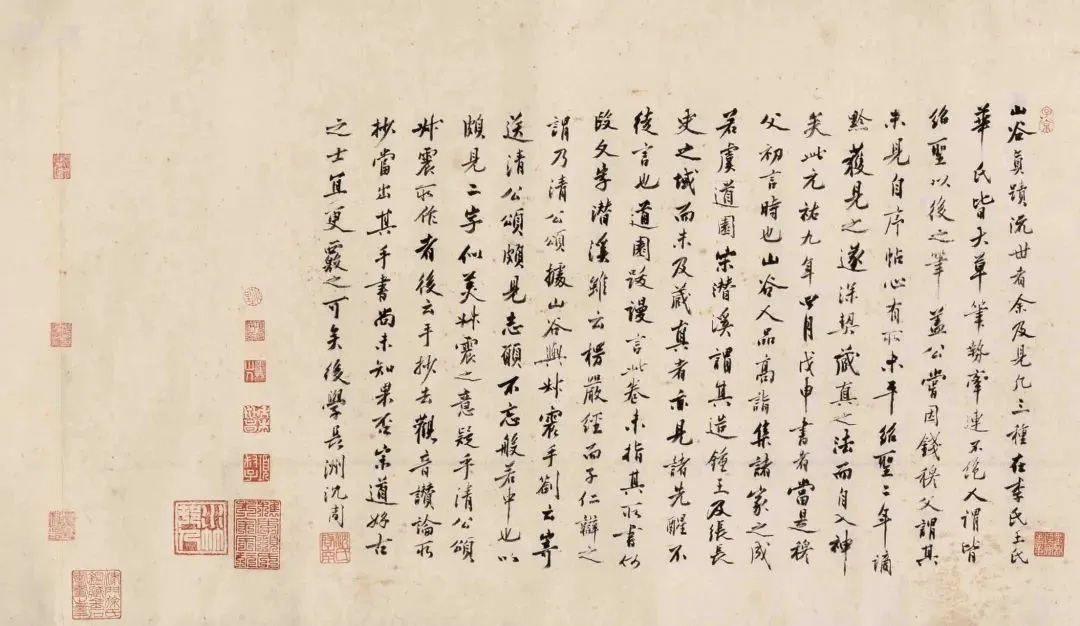 山谷真蹟流世者余及見凡三種在李氏王氏
華氏皆大草筆勢牽連不絕人謂皆
紹聖以後之筆蓋公嘗因錢穆父謂其
未見自序帖心有所未平紹聖二年謫
黔獲見之遂深契藏真之法而自入神
矣此元祐九年四月戊申書者當是穆
父初言時也山谷人品高詣集諸家之成
若虞道園宋潛溪謂其造鍾王及張長
史之域而未及藏真者亦見諸先醒不
徒言也道園跋謾言此卷未指其所書何
段文字潛溪雖云楞嚴經而子仁辯之
謂乃清公頌據山谷與叔震手劄云寄
送清公頌頗見志願不忘般若中也以
頗見二字似美叔震之意疑乎清公頌
叔震所作者後云手抄去觀音讚論所
抄當出其手書尚未知果否宗道好古
之士宜更覈之可矣後學長洲沈周